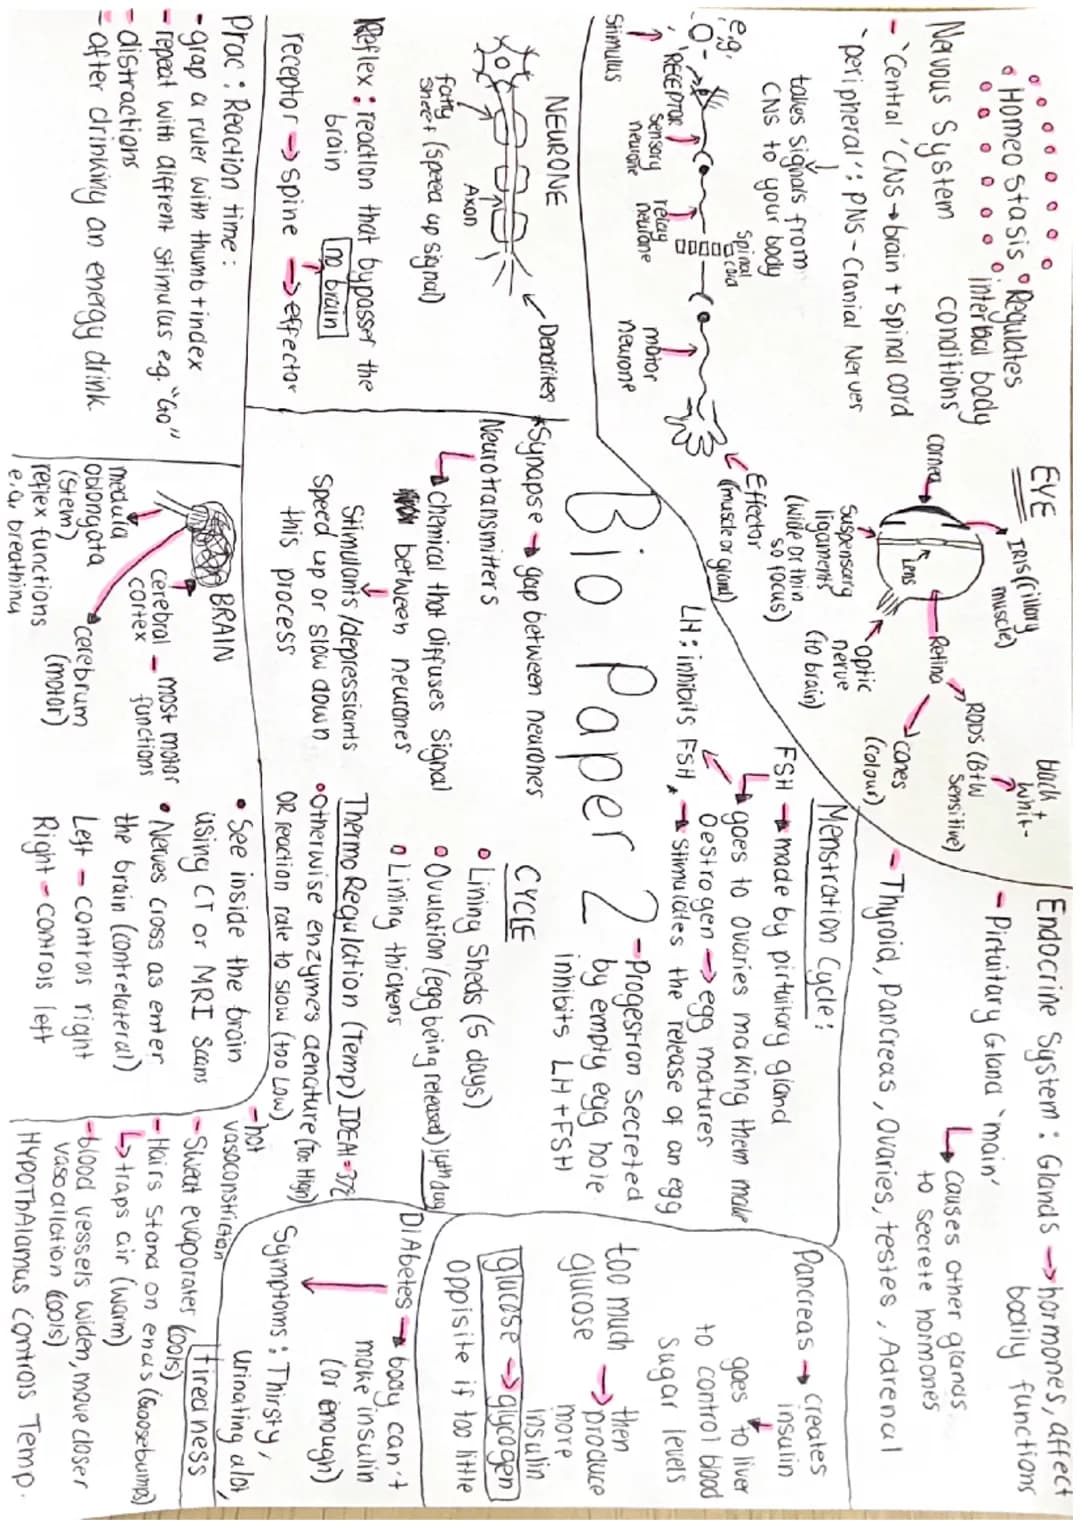 Homeostasis • Regulates
interbal body
conditions
Nervous System
- 'Central' CNS → brain + Spinal cord
'peripheral': PNS - Cranial Nerves
takes signals from
CNS to your body
e.g.
Stimulus
'RECEPTOR'
sensory
neurone
relay
neurone
spinal
cord
motor
neurone
Effector
(muscle or gland)
EYE
cornea
IRIS (cillary
muscle)
Lens
Suspensary
ligaments
(wide or thin
so focus)
Retina
optic
nerve
(to brain)
RODS (B+W
Sensitive)
black +
whit-
cones
(colour)
Endocrine System: Glands → hormones, affect
bodily functions
- Pirtuitary Gland 'main'
↳ causes other glands
to secrete hormones
- Thyroid, pancreas, ovaries, testes, Adrenal
NEURONE
Dendrites
Axon
Fatty
Sheet (speed up signal)
Reflex: reaction that bypasser the
brain
no brain
receptor → spine → effector
Prac: Reaction time:
• grap a ruler with thumb + index
- repeat with diffrent stimulus eg. "Go"
- distractions
- after drinking an energy drink.
Bio Paper 2
*Synapse → gap between neurones
Neurotransmitters
↳ chemical that diffuses signal
between neurones
Stimulants/depressiants
Speed up or slow down
this process
BRAIN
medula
oblongata
(stem)
reflex functions
e.g. breathing
cerebral - most motor
cortex functions
cerebrum
(motor)
• See inside the brain
using CT or MRI Scans
• Nerves cross as enter
the brain (contrelateral)
Left - controls right
Right - controls left
Menstration Cycle:
FSH → made by pirtuitary gland
↳ goes to ovaries making them make
Oestrogen → egg matures
LH: inhibits FSH, → Stimulates the release of an egg
- Progestron secreted
by empty egg hole
inhibits LH + FSH
CYCLE
• Lining Sheds (5 days)
• Ovulation (egg being released) 14th day
• Lining thickens
Thermo Regulation (Temp) IDEAL = 37°C
• Otherwise enzymes denature (Too High)
OR reaction rate to slow (too Low)
- hot
vasoconstriction
- Sweat evaporates (cools)
- Hairs stand on ends (Goosebumps)
↳ traps air (warm)
- blood vessels widen, move closer
vasoallation (cools)
HYPOThAlamus controls Temp.
Pancreas → creates
insulin
goes to liver
to control blood
Sugar levels
too much then
glucose → produce
more
insulin
glucose → glycogen
oppisite if too little
DIAbetes → body can't
make insulin
(or enough)
Symptoms: Thirsty,
urinating alot,
tiredness